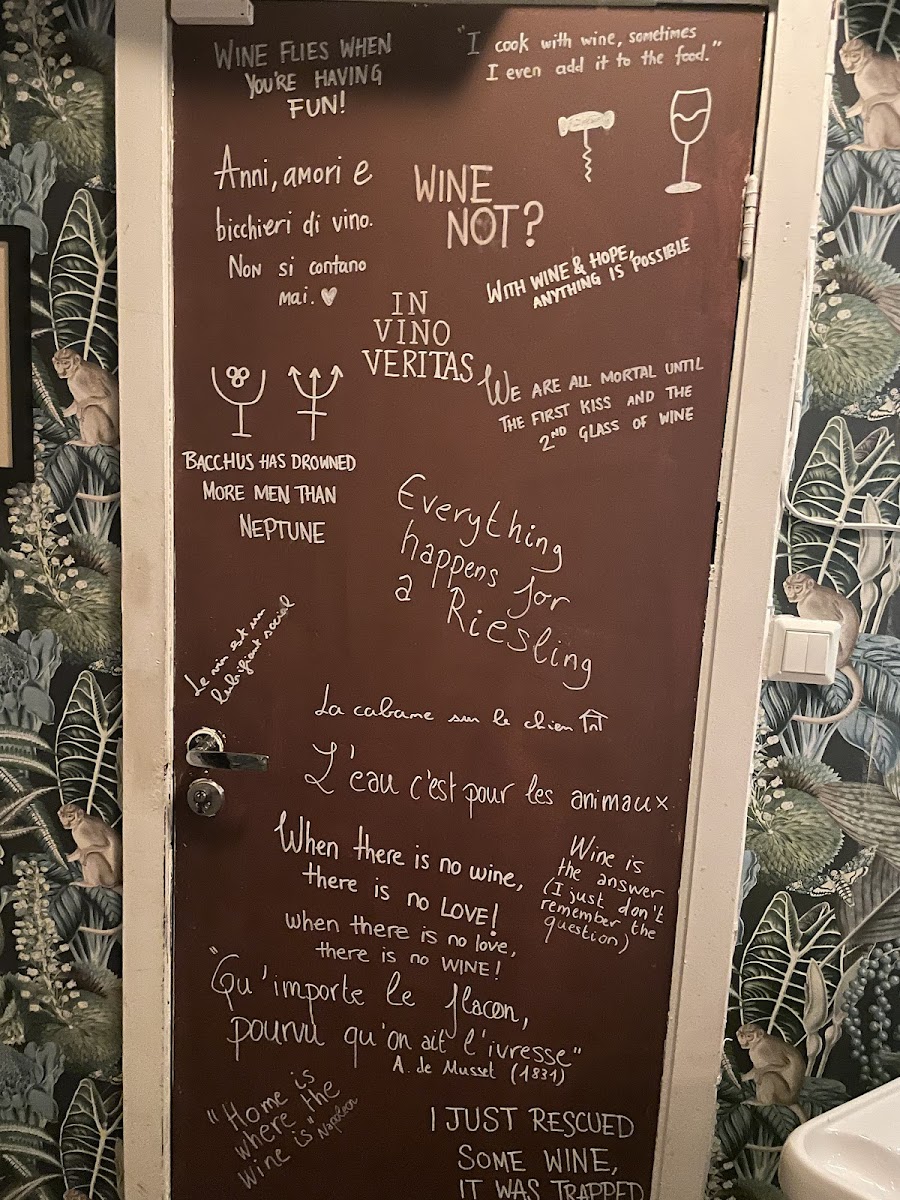 WINE FLIES WHEN
YOU'RE HAVING
FUN!
"I cook with wine, sometimes
I even add it to the food."
Anni, amori e
bicchieri di vino.
Non si contano
mai.
WINE
NOT?
WITH WINE & HOPE,
ANYTHING IS POSSIBLE
IN
VINO
VERITAS
WE ARE ALL MORTAL UNTIL
THE FIRST KISS AND THE
2ND GLASS OF WINE
BACCHUS HAS DROWNED
MORE MEN THAN
NEPTUNE
Everything
happens for
a Riesling
Le vin est un
lubrifiant social
La cabane sur le chien
L'eau c'est pour les animaux
When there is no wine,
there is no LOVE!
when there is no love,
there is no WINE!
Wine is
the answer
(I just don't
remember the
question)
"Qu'importe le flacon,
pourvu qu'on ait l'ivresse"
A. de Musset (1831)
"Home is
where the
wine is"
Napoleon
I JUST RESCUED
SOME WINE,
IT WAS TRAPPED